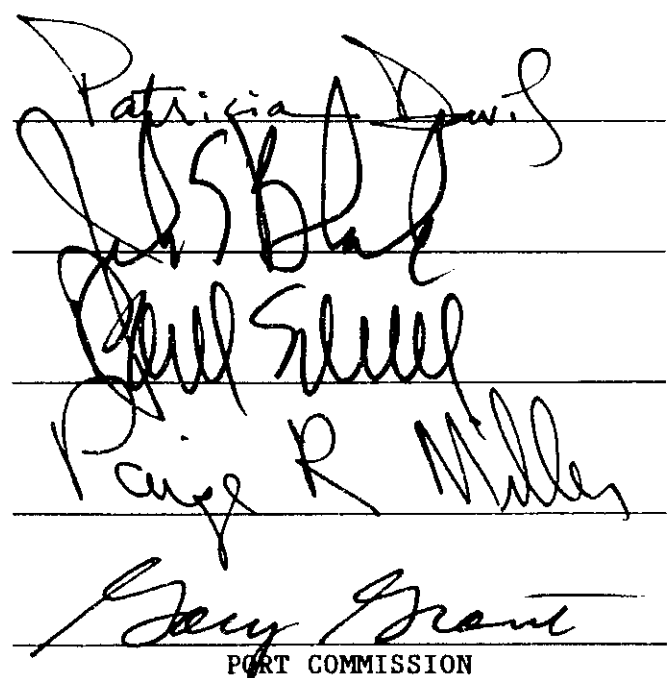 Patricia Davis
Jack S Block
Paige R Miller
Gary Grant
PORT COMMISSION